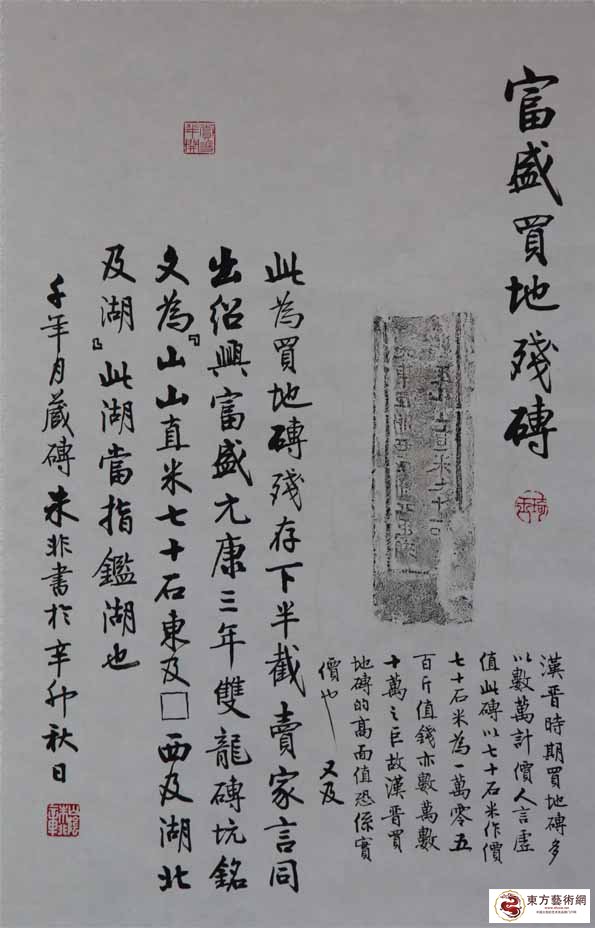 富盛買地殘磚
直米七十石
漢晉時期買地磚多
以數萬計價人言虛
值此磚以七十石米作價
七十石米為一萬零五
百斤值錢亦數萬數
十萬之巨故漢晉買
地磚的高面值恐係實
價也 又及
此為買地磚殘存下半截賣家言同
出紹興富盛元康三年雙龍磚坑銘
文為『山山直米七十石東及□西及湖北
及湖』此湖當指鑑湖也
千年月藏磚朱非書於辛卯秋日
東方藝術網